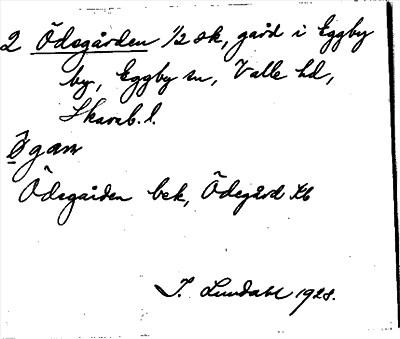 2 Ödegården 1/2 sk, gård i Eggby
by, Eggby sn, Valle hd,
Skarab. l.
Ögam
Ödegarden bek, Ödegård Kb
I. Lundahl 1928.